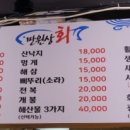 만원상회
산낙지 18,000
멍게 15,000
해삼 15,000
배뚜리(소라) 15,000
전복 20,000
개불 20,000
해산물 3가지 40,000